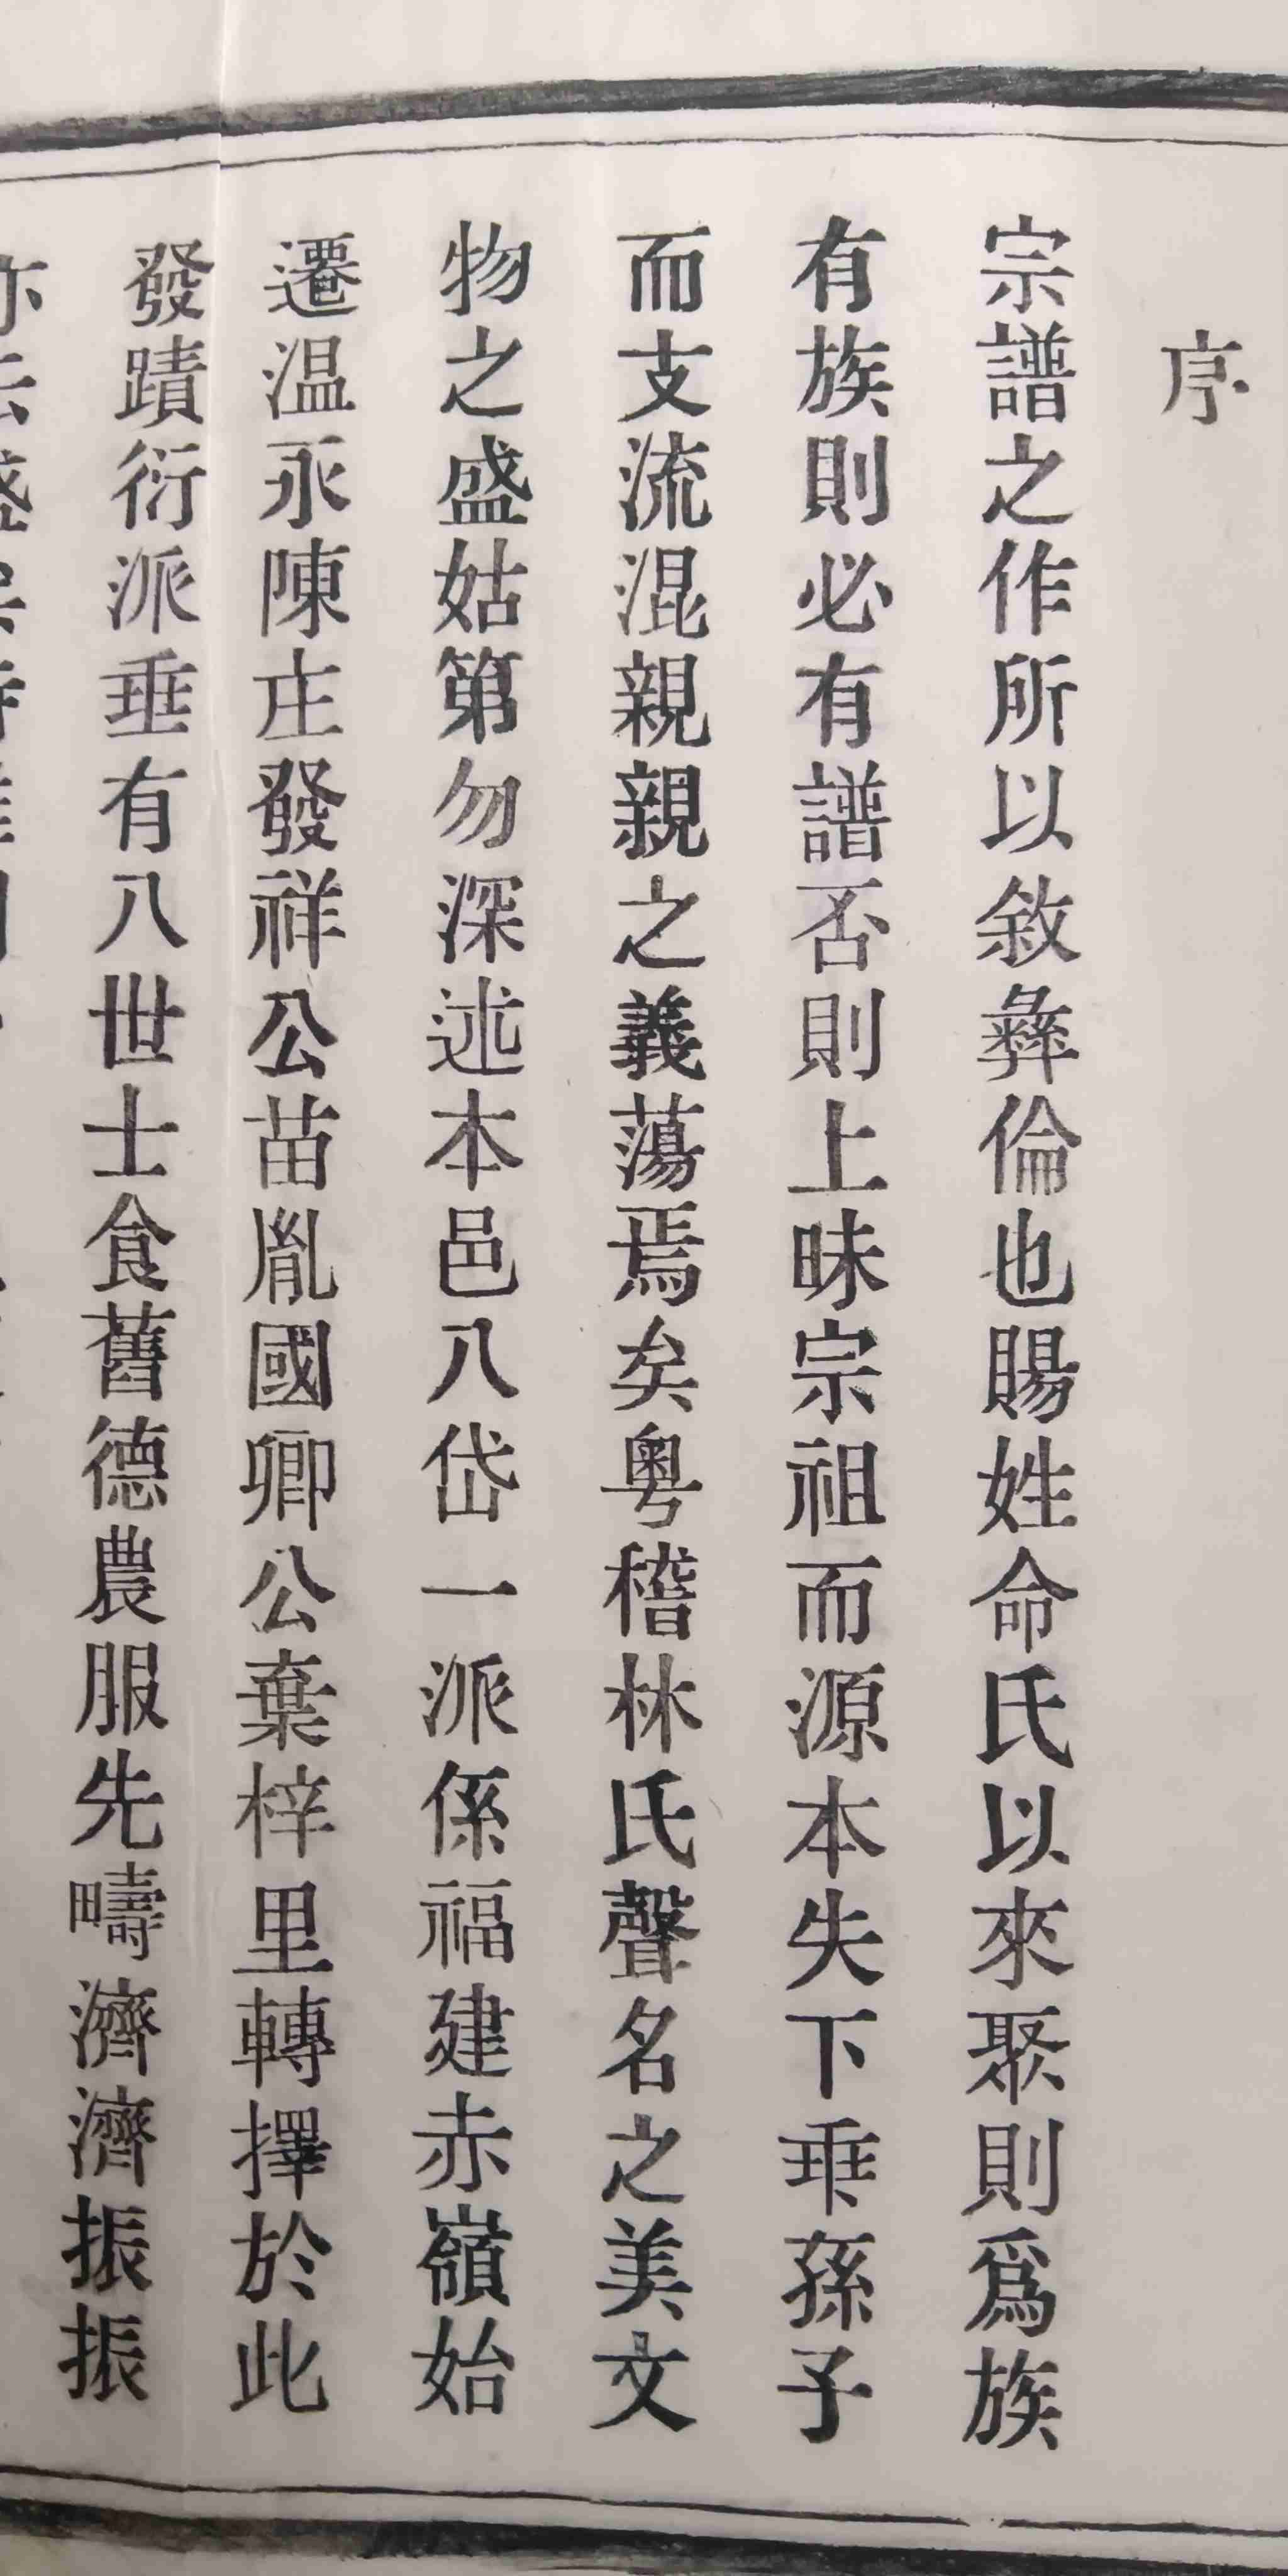 序
宗譜之作所以敘彝倫也賜姓命氏以來聚則爲族
有族則必有譜否則上昧宗祖而源本失下乗孫子
而支流混親親之義蕩焉矣粤稽林氏聲名之美文
物之盛姑第勿深述本邑八岱一派係福建赤嶺始
遷温永陳庄發祥公苗胤國卿公棄梓里轉擇於此
發蹟衍派垂有八世士食舊德農服先疇濟濟振振